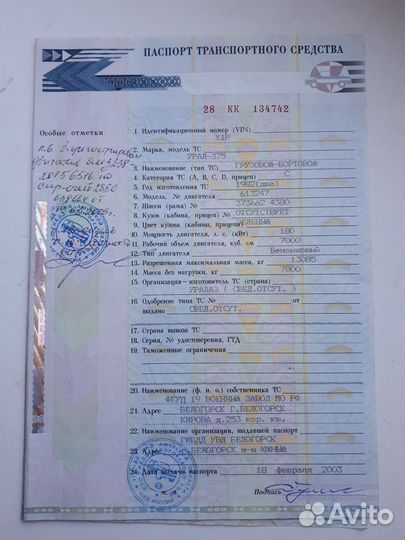 ПАСПОРТ ТРАНСПОРТНОГО СРЕДСТВА
28 КК 134742
Особые отметки
п.6.
1. Идентификационный номер (VIN)
X1P
2. Марка, модель ТС
УРАЛ-375
3. Наименование (тип ТС) ГРУЗОВОЙ-БОРТОВОЙ
4. Категория ТС (А, В, С, D, прицеп) С
5. Год изготовления ТС 1982(два)
6. Модель, № двигателя 613247
7. Шасси (рама) № 373662 4380
8. Кузов (кабина, прицеп) № ОТСУТСТВУЕТ
9. Цвет кузова (кабины, прицепа) ЗЕЛЕНЫЙ
10. Мощность двигателя, л. с. (кВт) 180
11. Рабочий объем двигателя, куб. см 7000
12. Тип двигателя Бензиновый
13. Разрешенная максимальная масса, кг 13085
14. Масса без нагрузки, кг 7800
15. Организация—изготовитель ТС (страна)
УРАЛАЗ ( СВЕД.ОТСУТ. )
16. Одобрение типа ТС № от
выдано СВЕД.ОТСУТ.
17. Страна вывоза ТС
18. Серия, № удостоверения, ГТД
19. Таможенные ограничения
20. Наименование (ф. и. о.) собственника ТС
ФГУП 19 ВОЕННЫЙ ЗАВОД МО РФ
21. Адрес БЕЛОГОРСК Г.БЕЛОГОРСК
КИРОВА д.253 кор. кв.
22. Наименование организации, выдавшей паспорт
ГИБДД УВД БЕЛОГОРСК
23. Адрес БЕЛОГОРСК м-н ЮЖНЫЙ
24. Дата выдачи паспорта 18 Февраля 2003
М. П. Подпись
Avito